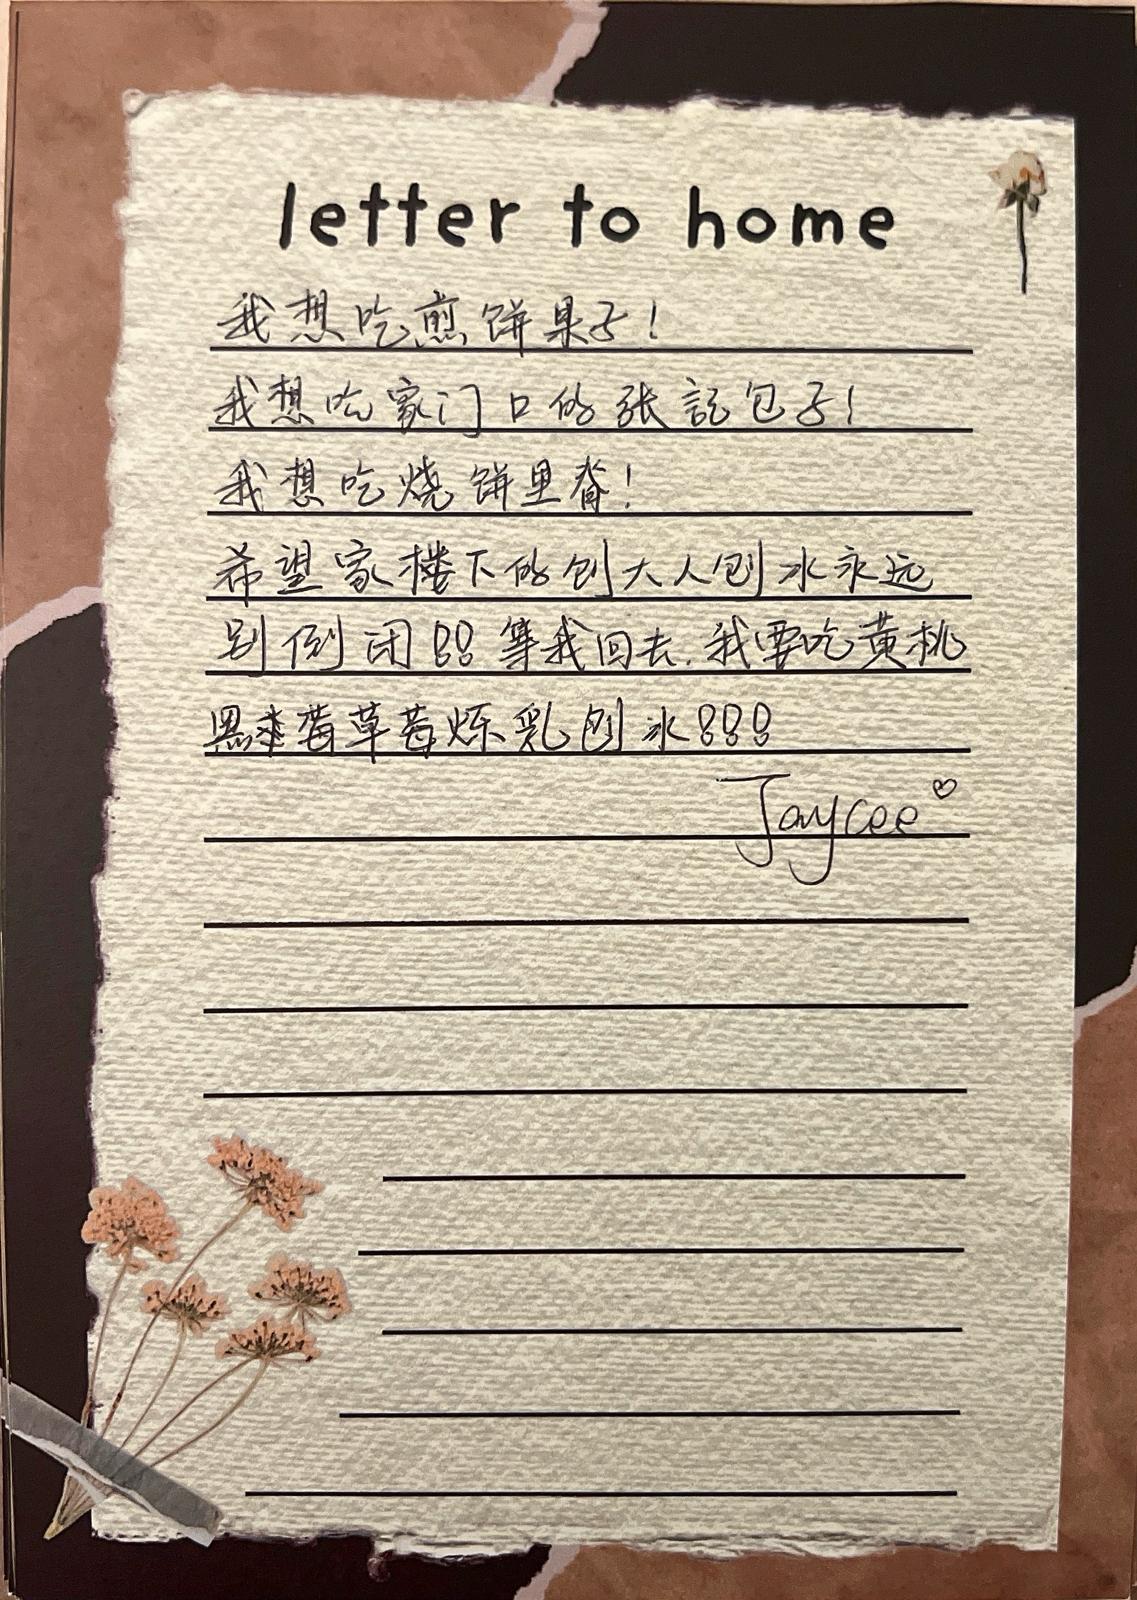 letter to home
我想吃煎饼果子！
我想吃家门口的张記包子！
我想吃烧饼里脊！
希望家楼下的刨大人刨冰永远
别倒闭!! 等我回去，我要吃黄桃
黑莓草莓炼乳刨冰!!!
Jaycee♡